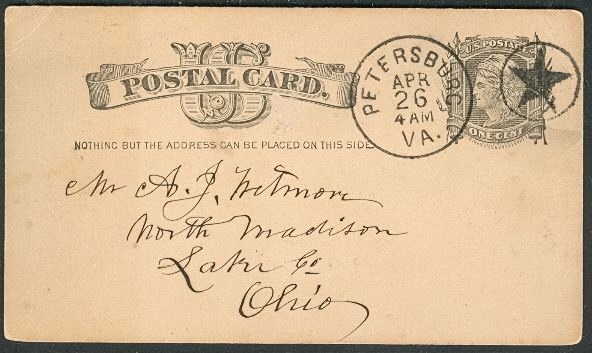 US
POSTAL CARD.
NOTHING BUT THE ADDRESS CAN BE PLACED ON THIS SIDE
PETERSBURG
APR
26
4 AM
VA.
U.S. POSTAGE
ONE CENT
Mr A. J. Wetmore
North Madison
Lake Co
Ohio